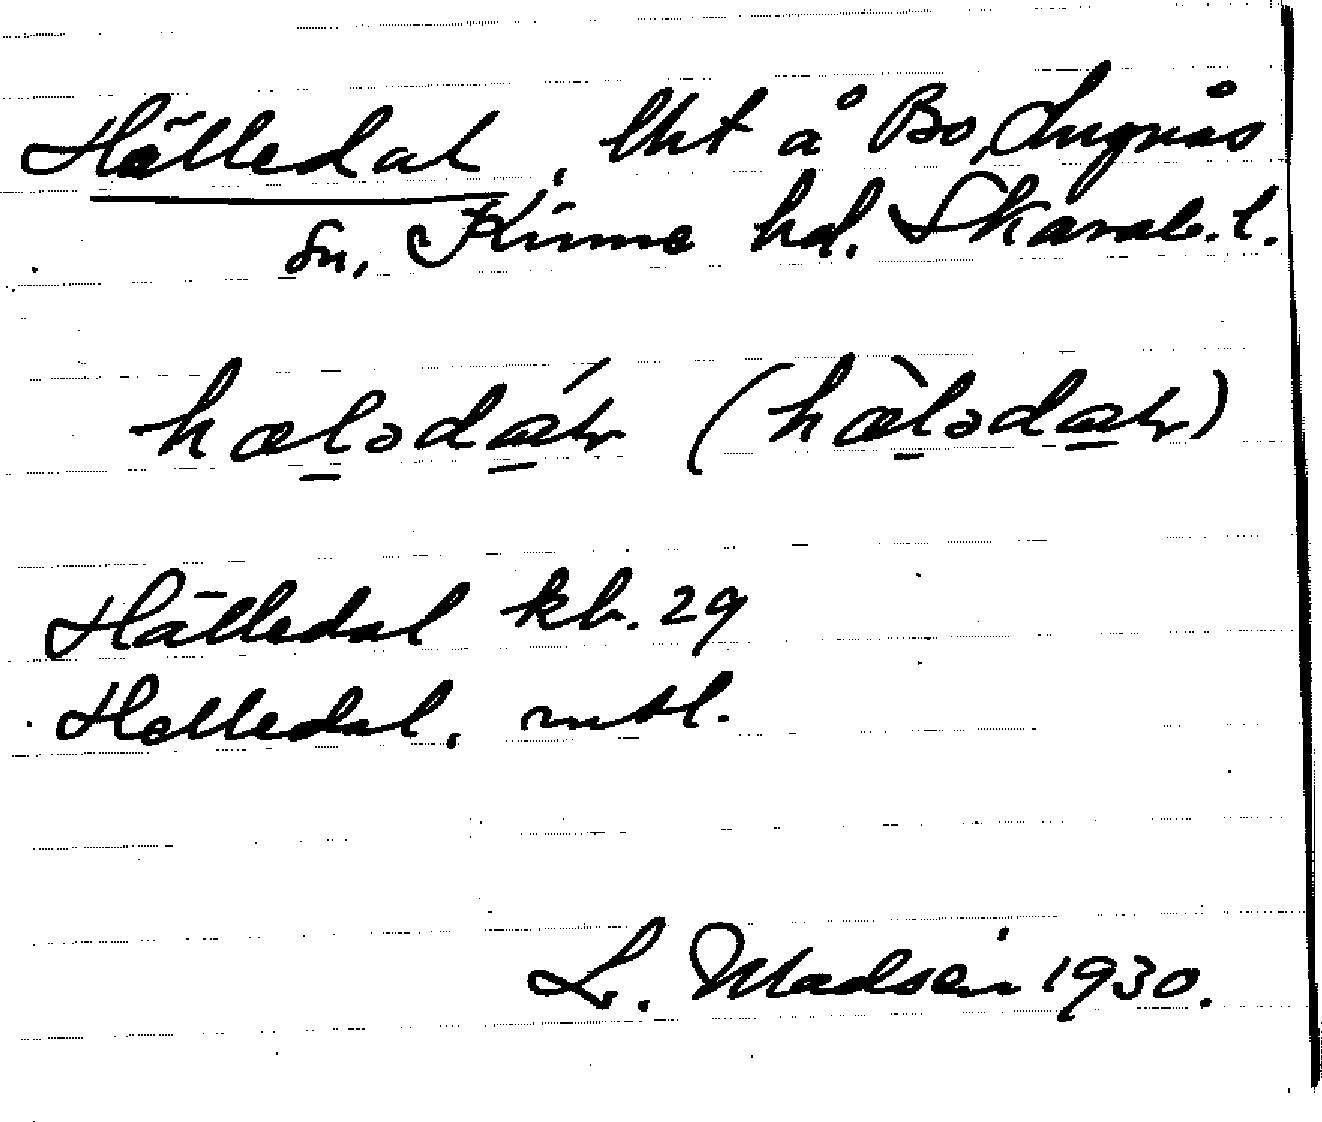 Hälledal, lht å Bo, Lugnås
sn, Kinne hd. Skarab. l.
hælədáɬ (hæ̀lədaɬ)
Hälledal kb. 29
Helledal, mtl.
L. Madsén 1930.